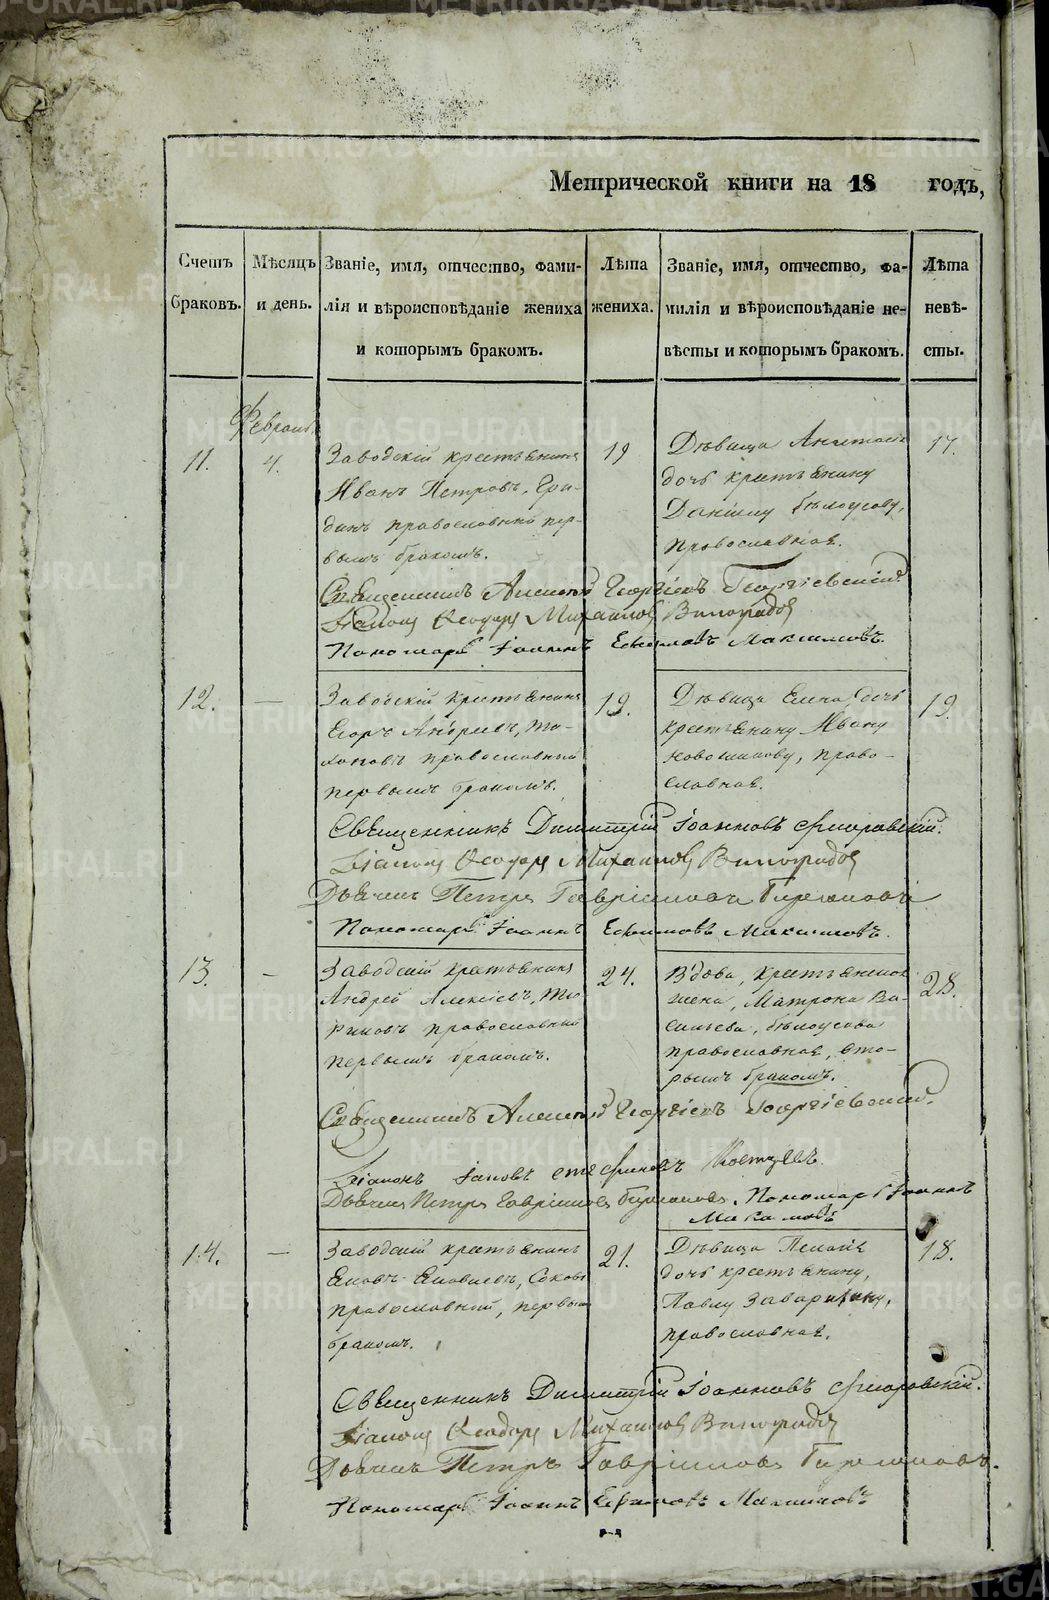 Метрической книги на 18 годъ,
Счетъ браковъ.
Мѣсяцъ и день.
Званіе, имя, отчество, фами-
лія и вѣроисповѣданіе жениха
и которымъ бракомъ.
Лѣта жениха.
Званіе, имя, отчество, фа-
милія и вѣроисповѣданіе не-
вѣсты и которымъ бракомъ.
Лѣта невѣ-
сты.
Февраль
11.
4.
Заводскій крестьянинъ
Иванъ Петровъ,
православный пер-
вымъ бракомъ.
19
Дѣвица
дочь крестьянину
Даніилу Бѣлоусову,
православная.
17.
Священникъ Алексѣй Георгіевъ Георгіевскій
Діаконъ Ѳеодоръ Михаиловъ Виноградовъ
Пономарь Іоаннъ Ефимовъ Максимовъ.
12.
—
Заводскій крестьянинъ
Егоръ Андреевъ,
православный
первымъ бракомъ.
19.
Дѣвица Елена, дочь
крестьянину Ивану
Новошинову, право-
славная.
19.
Священникъ Димитрій Іоанновъ
Діаконъ Ѳеодоръ Михаиловъ Виноградовъ
Дьячекъ Петръ Гавріиловъ
Пономарь Іоаннъ Ефимовъ Максимовъ.
13.
—
Заводскій крестьянинъ
Андрей Алексѣевъ,
православный
первымъ бракомъ.
24.
Вдова, крестьянская
жена, Матрона Ва-
сильева, Бѣлоусова
православная, вто-
рымъ бракомъ.
28.
Священникъ Алексѣй Георгіевъ Георгіевскій.
Діаконъ
Дьячекъ Петръ Гавріиловъ Пономарь Іоаннъ
14.
—
Заводскій крестьянинъ
православный, первымъ
бракомъ.
21.
Дѣвица Пелагія
дочь крестьянину,
Павлу Заварихину,
православная.
18.
Священникъ Димитрій Іоанновъ
Діаконъ Ѳеодоръ Михаиловъ Виноградовъ
Дьячекъ Петръ Гавріиловъ
Пономарь Іоаннъ Ефимовъ Максимовъ
METRIKI.GASO-URAL.RU